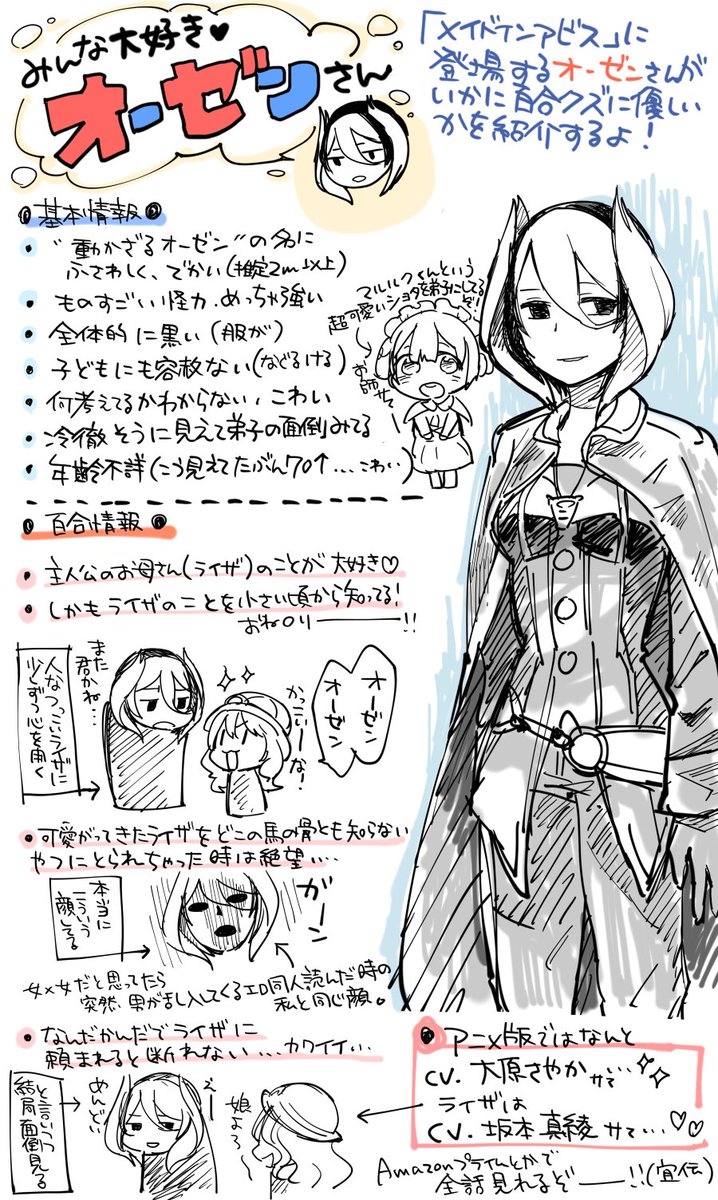 みんな大好き♥
オーゼンさん
「メイドインアビス」に
登場するオーゼンさんが
いかに百合クズに優しい
かを紹介するよ！
基本情報
• "動かざるオーゼン"の名に
ふさわしく、でかい(推定2m以上)
• ものすごい怪力、めっちゃ強い
• 全体的に黒い(服が)
• 子どもにも容赦ない(なぐるける)
• 何考えてるかわからない、こわい
• 冷徹そうに見えて弟子の面倒みてる
• 年齢不詳(こう見えてたぶん70↑…こわい)
マルルクくんという
超可愛いショタを弟子にしてるぞ!
お師さん
百合情報
• 主人公のお母さん(ライザ)のことが大好き♡
• しかもライザのことを小さい頃から知ってる!
おねロリー!!
人なつっこいライザに
少しずつ心を開く
また
君かね…
かっこいーな!
オーゼン
オーゼン
• 可愛がってきたライザをどこの馬の骨とも知らない
やつにとられちゃった時は絶望…
本当に
こういう
顔してる
がーン
女×女だと思ってたら
突然、男がまじ入してくるエロ同人読んだ時の
私と同じ顔。
• なんだかんだでライザに
頼まれると断れない…カワイイ…
と言いつつ
結局面倒見る
めんど…
娘よろ
• アニメ版ではなんと
CV. 大原さやかサマ…
ライザは
CV. 坂本真綾サマ…♡♡
Amazonプライムとかで
全話見れるぞー!!(宣伝)